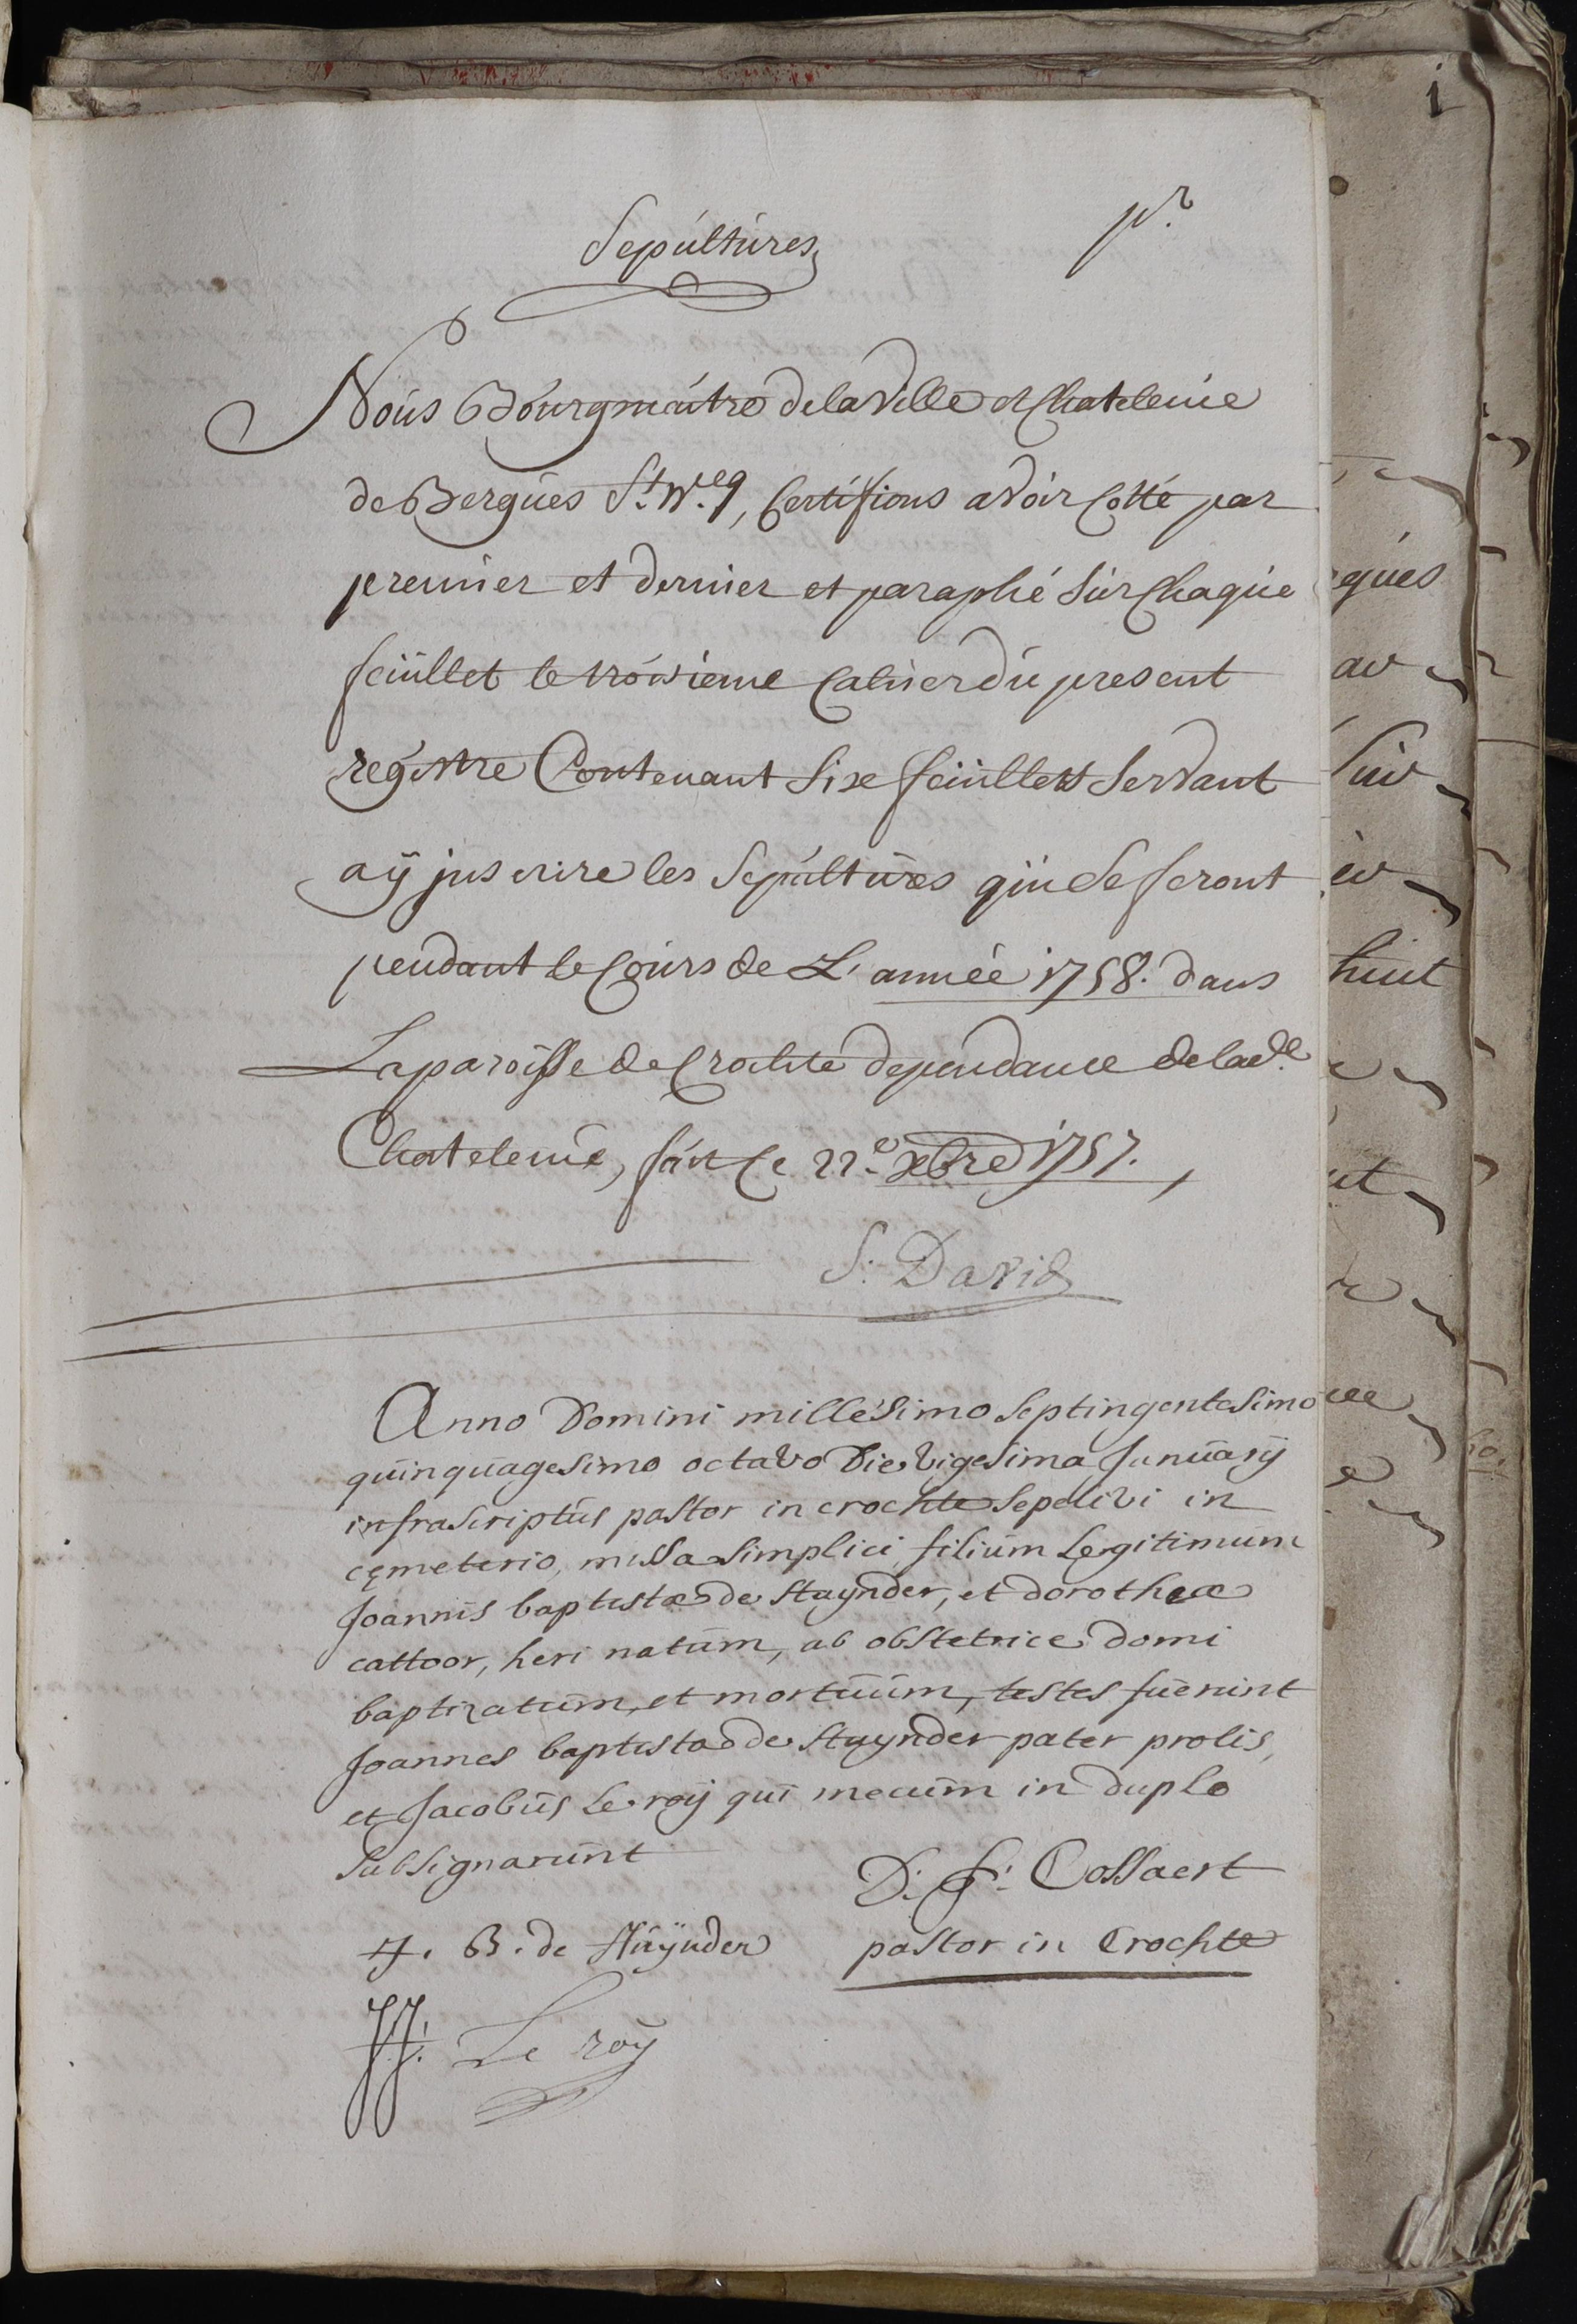 Sepultures
pr.
Nous Bourgmaitre de la Ville et Chatelenie
de Bergues St. Wcq, Certifions avoir Cotté par
premier et dernier et paraphé sur Chaque
feüillet le troisieme Cahier du present
registre Contenant Six feüillets Servant
a ÿ jnscrire les Sepultures qui Se feront
pendant le Cours de L'année 1758. dans
La paroisse de Crochte dependance de lad.e
Chatelenie, fait Ce 22e. xbre 1757.
S: David
Anno Domini millesimo septingentesimo
quinquagesimo octavo Die vigesima Januarij
infrascriptus pastor in crochte Sepelivi in
cęmeterio, missa simplici, filium Legitimum
Joannis baptistæ de Stuynder, et dorotheæ
cattoor, heri natum, ab obstetrice domi
baptizatum, et mortuum, testes fuerunt
Joannes baptista de Stuynder pater prolis,
et Jacobus Le roÿ qui mecum in duplo
Subsignarunt
D. J: Cossaert
pastor in Crochte
J. B. de Stuÿnder
J.J. Le roÿ
i
gues
av
huit